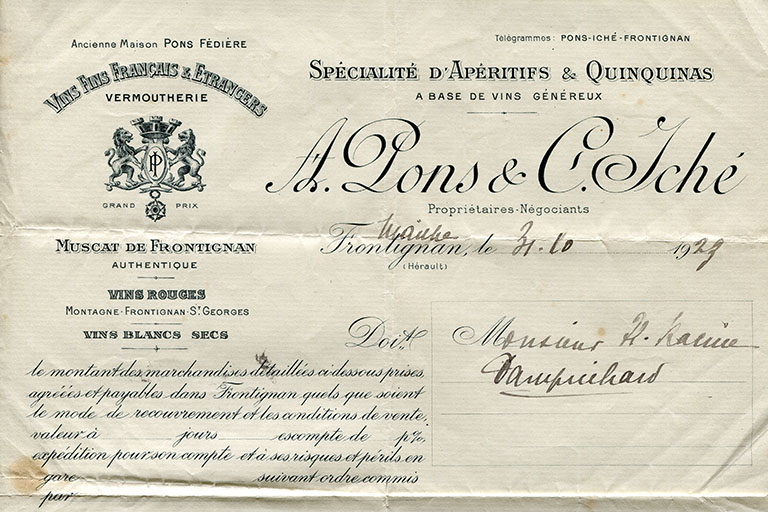 Ancienne Maison PONS FÉDIÈRE
VINS FINS FRANÇAIS & ETRANGERS
VERMOUTHERIE
GRAND PRIX
MUSCAT DE FRONTIGNAN
AUTHENTIQUE
VINS ROUGES
MONTAGNE-FRONTIGNAN-ST GEORGES
VINS BLANCS SECS
Télégrammes: PONS-ICHÉ-FRONTIGNAN
SPÉCIALITÉ D'APÉRITIFS & QUINQUINAS
A BASE DE VINS GÉNÉREUX
A. Pons & C. Iché
Propriétaires-Négociants
Frontignan, le 31.10 1929
(Hérault)
Doit
Monsieur H. Racine
le montant des marchandises détaillées ci-dessous prises,
agréées et payables dans Frontignan quels que soient
le mode de recouvrement et les conditions de vente,
valeur à jours escompte de p%,
expédition pour son compte et à ses risques et périls en
gare suivant ordre commis
par